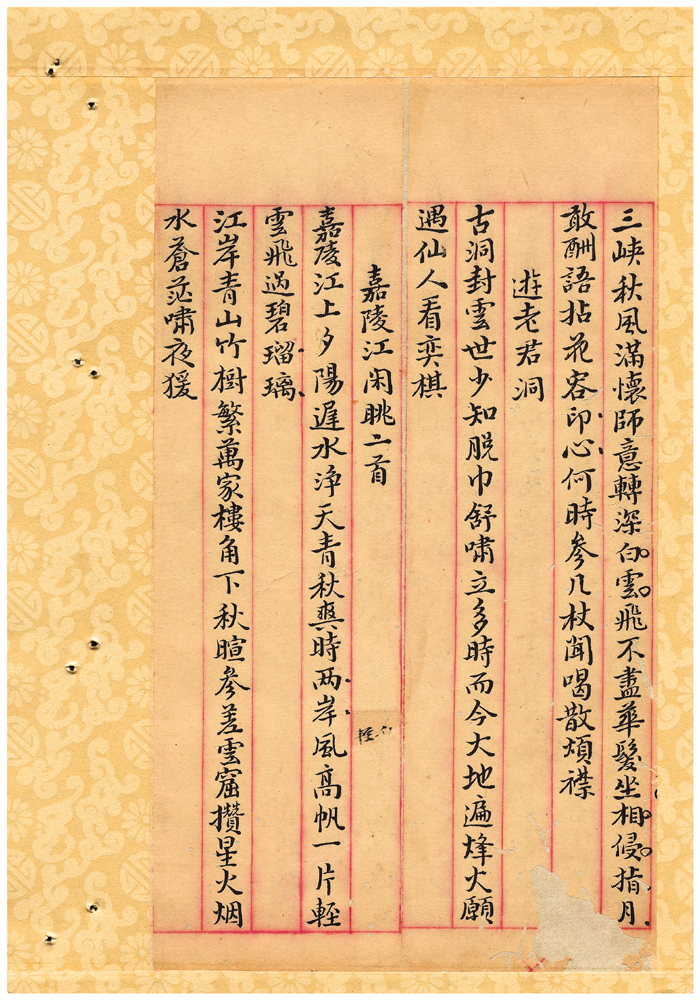 三峡秋風滿懷師意轉深白雲飛不盡華髮坐相侵指月
敢酬語拈花容印心何時參几杖聞喝散煩襟
遊老君洞
古洞封雲世少知脱巾舒嘯立多時而今大地遍烽火願
遇仙人看奕棋
嘉陵江闲眺二首
嘉陵江上夕陽遲水浄天青秋爽時两岸風高帆一片輕
雲飛過碧瑠璃
江岸青山竹樹繁萬家樓角下秋暄參差雲窟攢星火烟
水蒼茫嘯夜猨